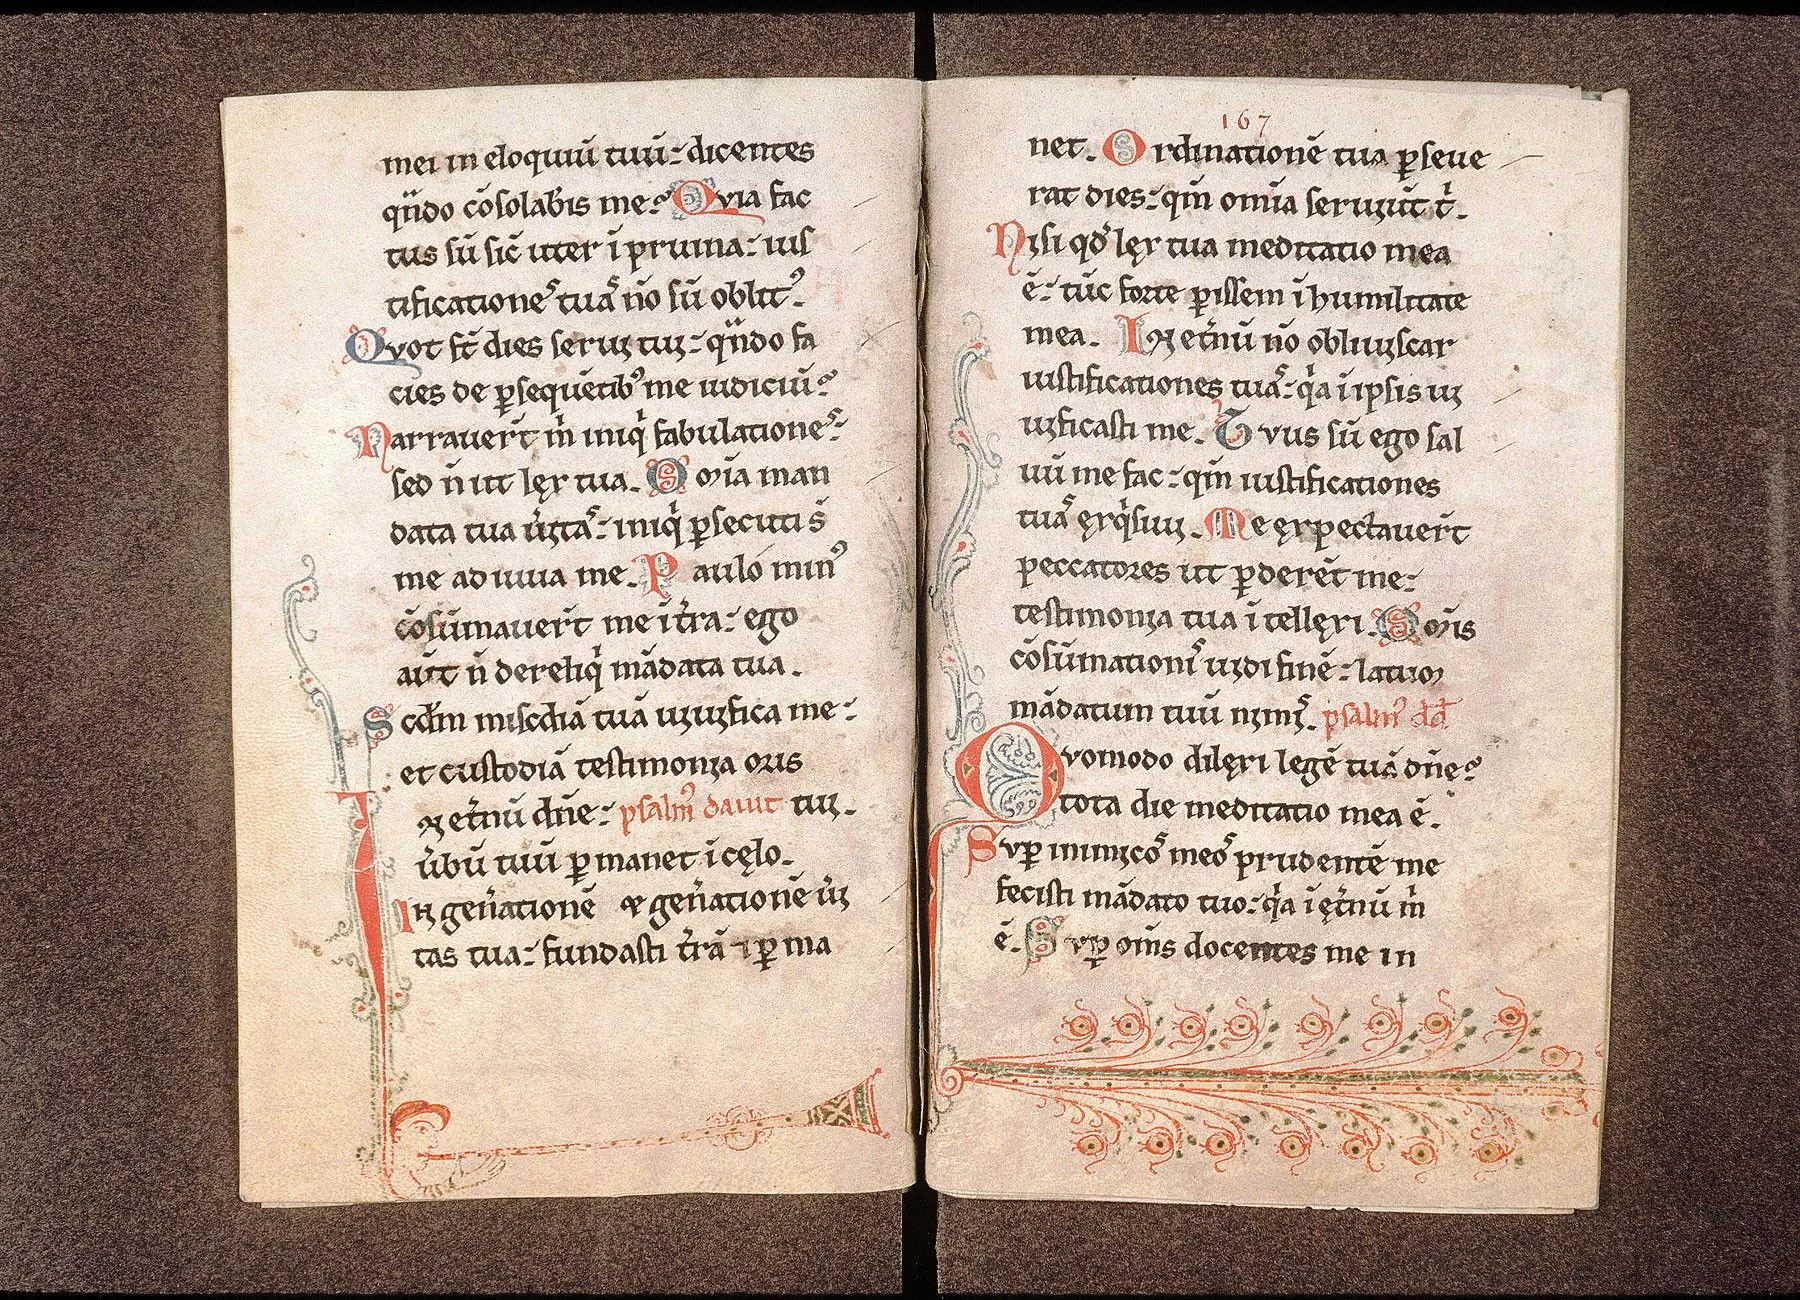 mei in eloquiū tuū: dicentes
qn̄do cōsolab̄is me? Qvia fac
tus sū sic̄ uter ī pruina: ius
tificationeˢ tuaˢ nō sū oblit᾿.
Qvot s̄t dies seruı tuı: qn̄do fa
cies de ꝑsequētib᾿ me iudiciū?
Narrauer̄t m̄ iniq̇ fabulationeˢ:
sed n̄ ut lęx tua. Om̄ia man
data tua ūıtaˢ: iniq̇ ꝑsecuti s̄
me adiuua me. Paulo min᾿
cōsūmauer̄t me ī t̄ra: ego
aūt n̄ dereliq̇ mādata tua.
Scd̄m misc̄diā tuā uıuıfica me:
et custodiā testimonıa oris
In et̄nū dn̄e: psalm᾿ dauit tuı.
ūbū tuū ꝑmanet ī cęlo.
In gen̄atione ⁊ gen̄ationē ūı
tas tua: fundasti t̄rā ⁊ ꝑma
167
net. Ordinationē tua ꝑseue
rat dies: qm̄ om̄ia seruıūt t̄.
Nısi qd̓ lęx tua meditatio mea
ē: tūc forte ꝑissem ī humilitate
mea. In et̄nū nō obliuıscar
iustificationes tuaˢ: q̇a ī ipsis uı
uıficasti me. Tvus sū ego sal
uū me fac: qm̄ iustificationes
tuaˢ ęxq̇siuı. Me ęxpectauer̄t
peccatores ut ꝑderēt me:
testimonıa tua ītellęxi. Om̄is
cōsūmationıˢ uıdi finē: latuˢ
mādatum tuū nımıˢ. psalm᾿ dd̄
Qvomodo dilęxi legē tuā dn̄e?
tota die meditatio mea ē.
Svꝑ inimıcoˢ meoˢ prudentē me
fecisti mādato tuo: q̇a ī ęt̄nū m̄
ē. Svꝑ om̄s docentes me in